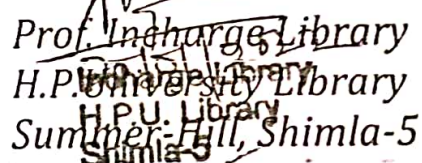 Prof. Incharge Library
H.P. University Library
H.P.U. Library
Summer-Hill, Shimla-5
Shimla-5